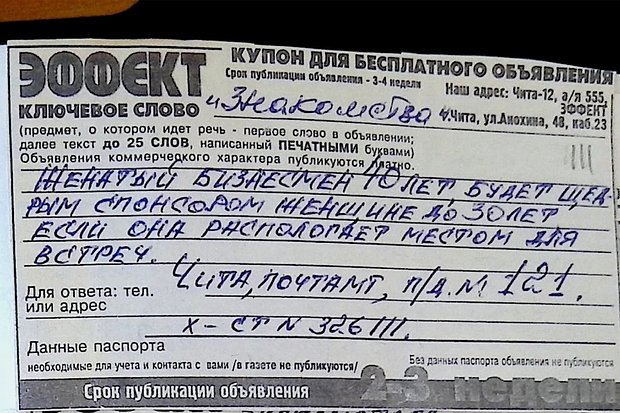 ЭФФЕКТ
КУПОН ДЛЯ БЕСПЛАТНОГО ОБЪЯВЛЕНИЯ
Срок публикации объявления - 3-4 недели
Наш адрес: Чита-12, а/я 555,
ЭФФЕКТ
КЛЮЧЕВОЕ СЛОВО "Знакомства"
г.Чита, ул.Анохина, 48, каб.23
(предмет, о котором идет речь - первое слово в объявлении;
далее текст до 25 СЛОВ, написанный ПЕЧАТНЫМИ буквами)
Объявления коммерческого характера публикуются платно.
ЖЕНАТЫЙ БИЗНЕСМЕН 40 ЛЕТ, БУДЕТ ЩЕД-
РЫМ СПОНСОРОМ ЖЕНЩИНЕ ДО 30 ЛЕТ
ЕСЛИ ОНА РАСПОЛОГАЕТ МЕСТОМ ДЛЯ
ВСТРЕЧ.
Для ответа: тел. ЧИТА, ПОЧТАМТ, П/Д. М 121.
или адрес
Х-СТ N 326111.
Данные паспорта
необходимые для учета и контакта с вами /в газете не публикуются/
Без данных паспорта объявления не публикуются
Срок публикации объявления 2-3 недели